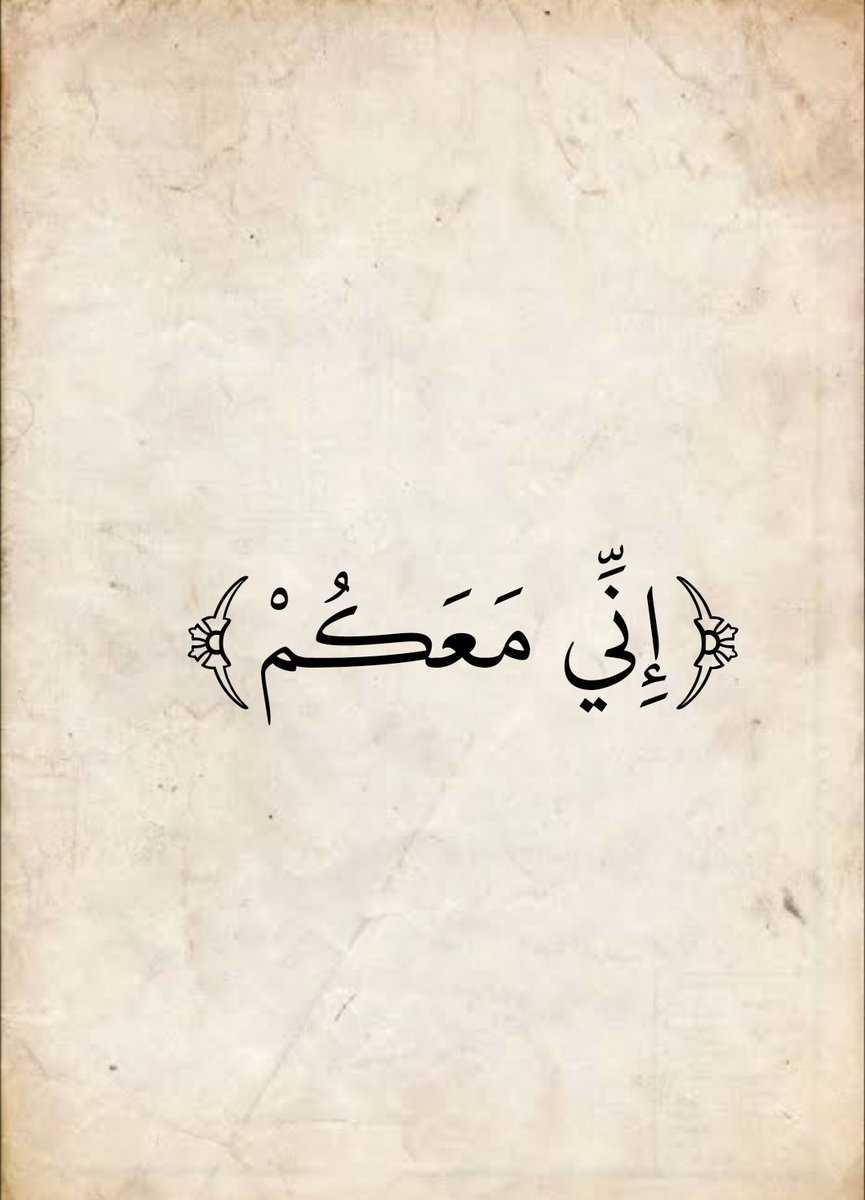 ﴿إِنِّي مَعَكُمْ﴾